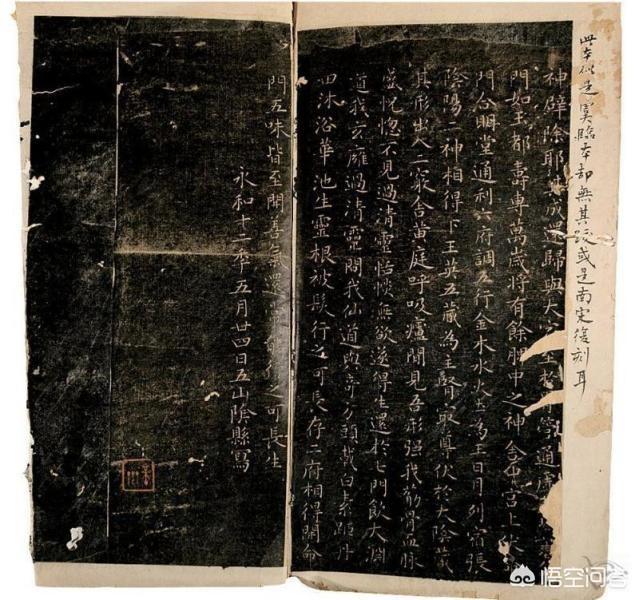 此本似是虞臨本却無其跋或是南宋復刻耳
神辟除耶成還歸與大家至於胃通
門如王都壽專萬歲將有餘脾中之神舍中宮上伏
門合明堂通利六府調五行金木水火土為王日月列宿張
陰陽二神相得下玉英五藏為主腎最尊伏於大陰藏
其形出入二竅合黃庭呼吸廬間見吾形強我筋骨血脉
盛恍惚不見過清靈恬惔無欲遂得生還於七門飲大淵
道我玄膺過清靈問我仙道與奇方頭載白素距丹
田沐浴華池生靈根被髮行之可長存二府相得開命
門五味皆至開善氣還行之可長生
永和十二年五月廿四日五山陰縣寫
悟空问答